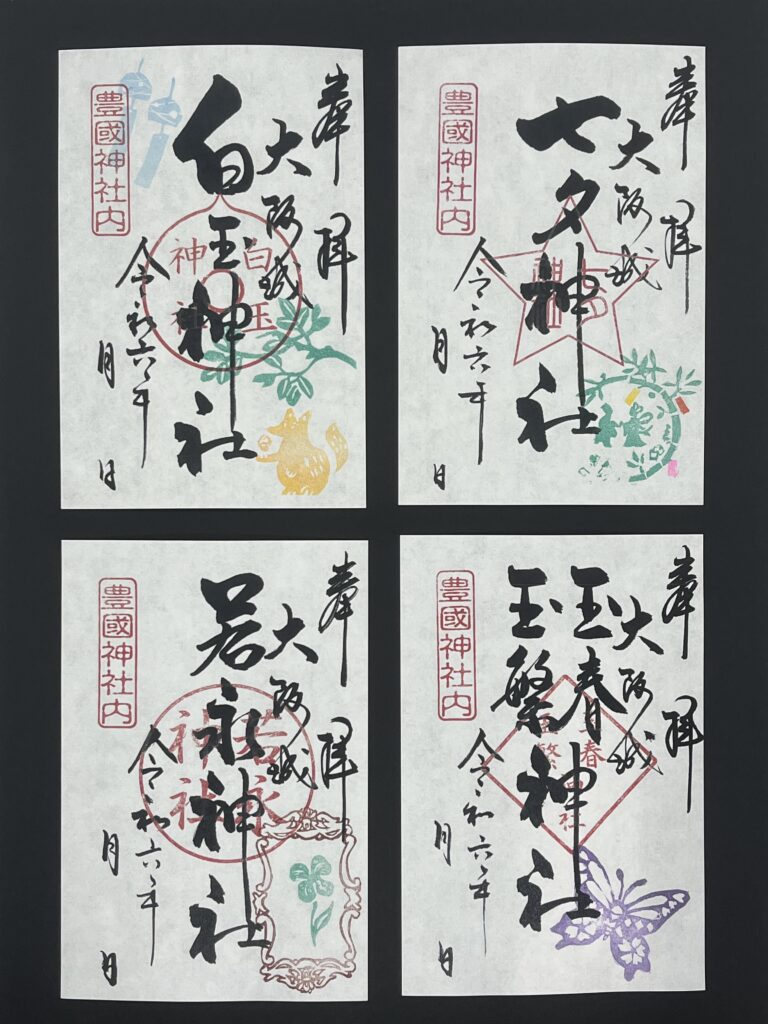 奉拝
大阪城
白玉神社
白玉
神社
令和六年
月 日
豊國神社内
奉拝
大阪城
七夕神社
令和六年
月 日
豊國神社内
奉拝
大阪城
若永神社
若永
神社
令和六年
月 日
豊國神社内
奉拝
大阪城
玉春
玉繁神社
令和六年
月 日
豊國神社内